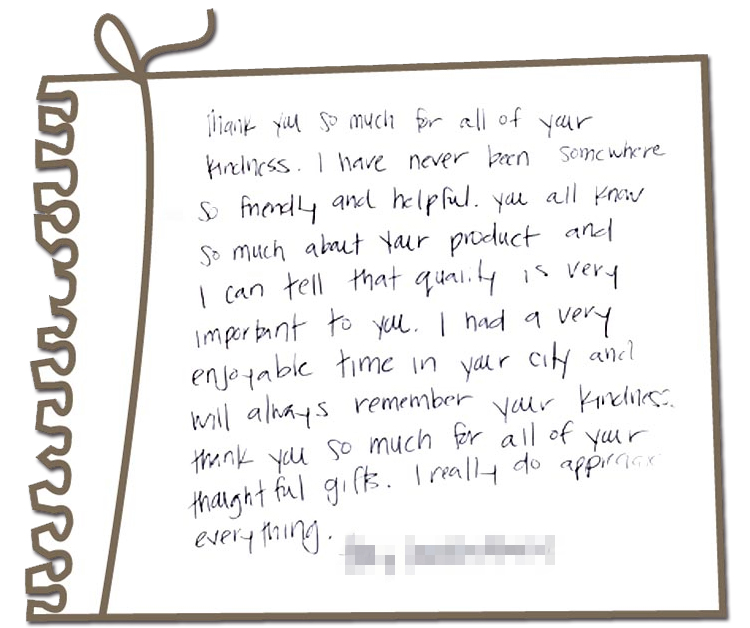 Thank you so much for all of your
kindness. I have never been somewhere
so friendly and helpful. you all know
so much about your product and
I can tell that quality is very
important to you. I had a very
enjoyable time in your city and
will always remember your kindness.
thank you so much for all of your
thoughtful gifts. I really do
everything.